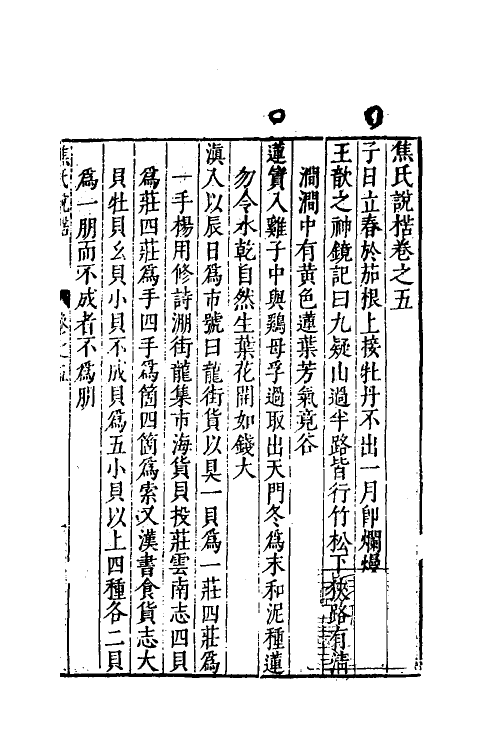 焦氏說楛卷之五
子日立春於茄根上接牡丹不出一月卽爛熳
王歆之神鏡記曰九疑山過半路皆行竹松下狹路有淸
澗澗中有黄色蓮葉芳氣竟谷
蓮實入雞子中與鷄母孚過取出天門冬爲末和泥種蓮
勿令水乾自然生葉花開如錢大
滇人以辰日爲市號曰龍街貨以貝一貝爲一莊四莊爲
一手楊用修詩淜街龍集市海貨貝投莊雲南志四貝
爲莊四莊爲手四手爲箇四箇爲索又漢書食貨志大
貝牡貝幺貝小貝不成貝爲五小貝以上四種各二貝
爲一朋而不成者不爲朋
焦氏說楛 卷之五 一